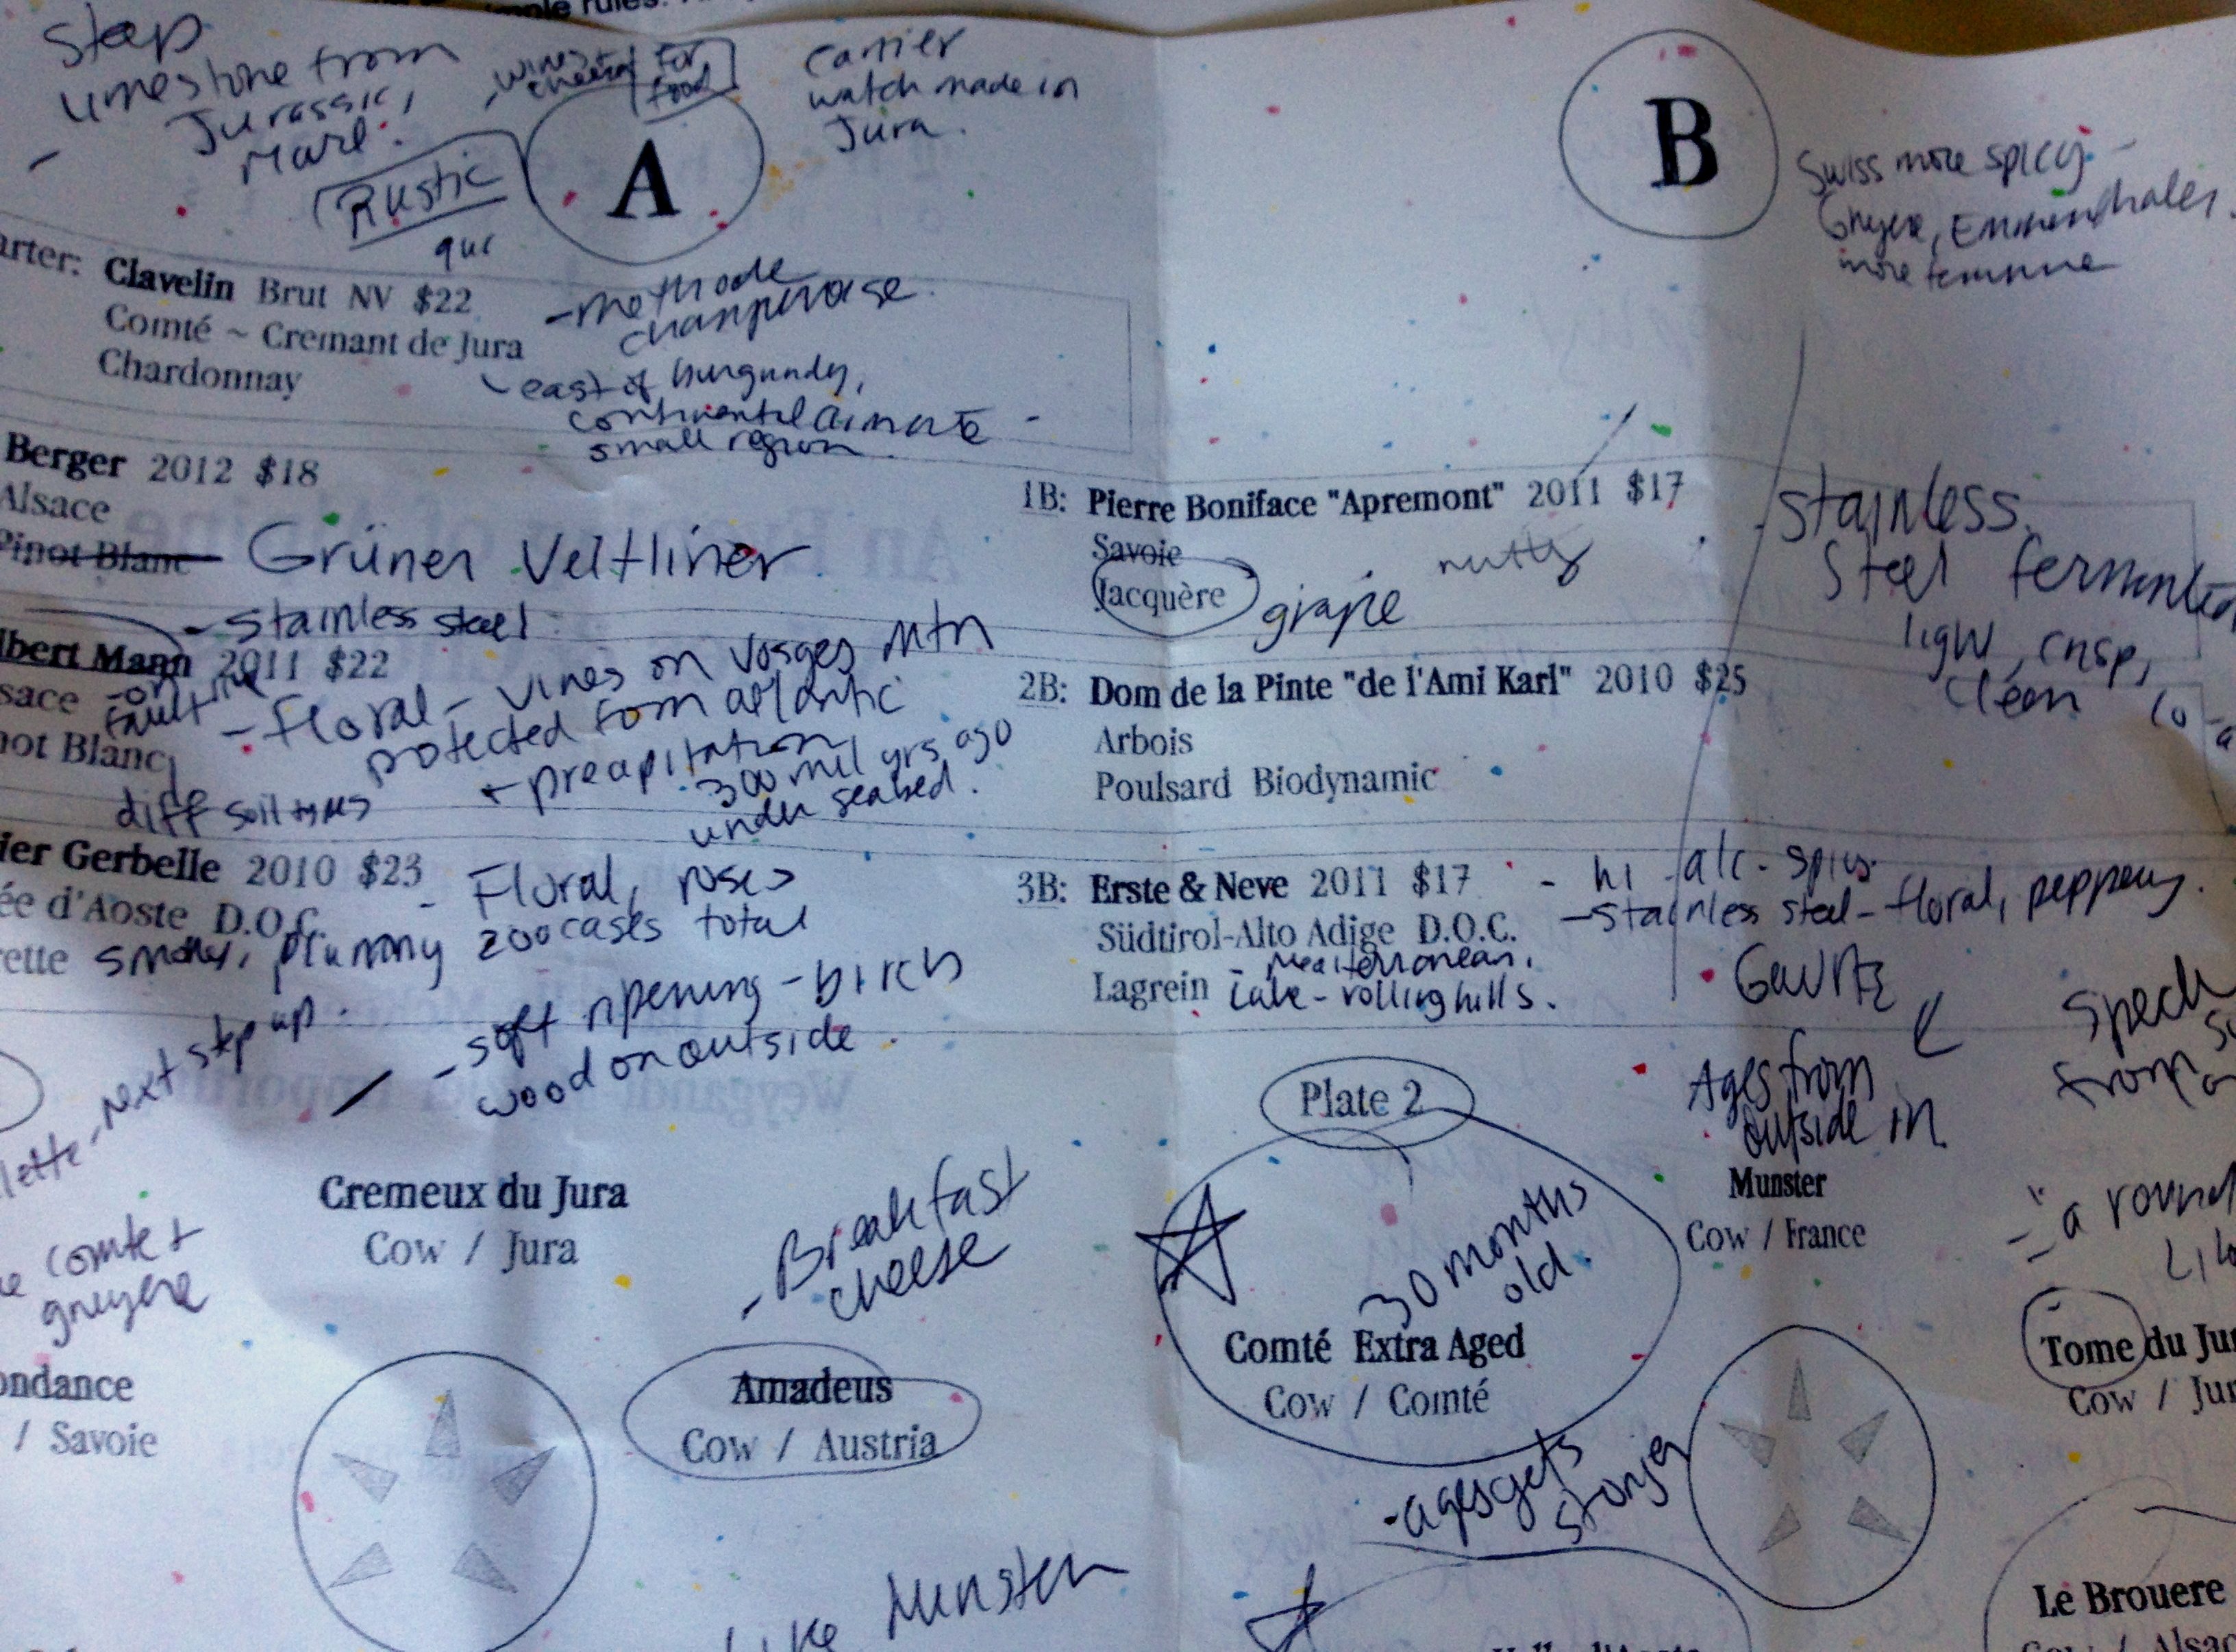 simple rules.
Step
limestone from
Jurassic,
Marl.
Rustic
- wines +
cheeses for
food
Cartier
watch made in
Jura.
A
B
Swiss more spicy -
Gruyere, Emmenthaler.
more feminine
arter: Clavelin Brut NV $22
Comté ~ Cremant de Jura
Chardonnay
- methode
champenoise.
- east of burgundy,
continental climate -
small region.
Berger 2012 $18
Alsace
Pinot Blanc Grüner Veltliner
- stainless steel
lbert Mann 2011 $22
sace - on
fault line
not Blanc
diff soil types
- floral - vines on Vosges Mtn
protected from atlantic
precipitation
300 mil yrs ago
under seabed.
ier Gerbelle 2010 $23
ée d'Aoste D.O.C.
ette smokey, plummy
- Floral, roses
200 cases total
1B: Pierre Boniface "Apremont" 2011 $17
Savoie
Jacquère grape
nutty
stainless
steel fermented
light, crisp,
clean
2B: Dom de la Pinte "de l'Ami Karl" 2010 $25
Arbois
Poulsard Biodynamic
3B: Erste & Neve 2011 $17 - hi alc - spicy
Südtirol-Alto Adige D.O.C. - stainless steel - floral, peppery.
Lagrein - Mediterranean,
Lake - rolling hills.
lette - next step up.
- soft ripening - birch
wood on outside.
Cremeux du Jura
Cow / Jura
comte +
gruyere
ondance
/ Savoie
- Breakfast
cheese
Amadeus
Cow / Austria
like Munster
Plate 2
30 months
old.
Comté Extra Aged
Cow / Comté
- ages gets
stronger
Ages from
outside in
Munster
Cow / France
from
- "a round
Tome du Jur
Cow / Jur
Le Brouere
Cow / Alsa